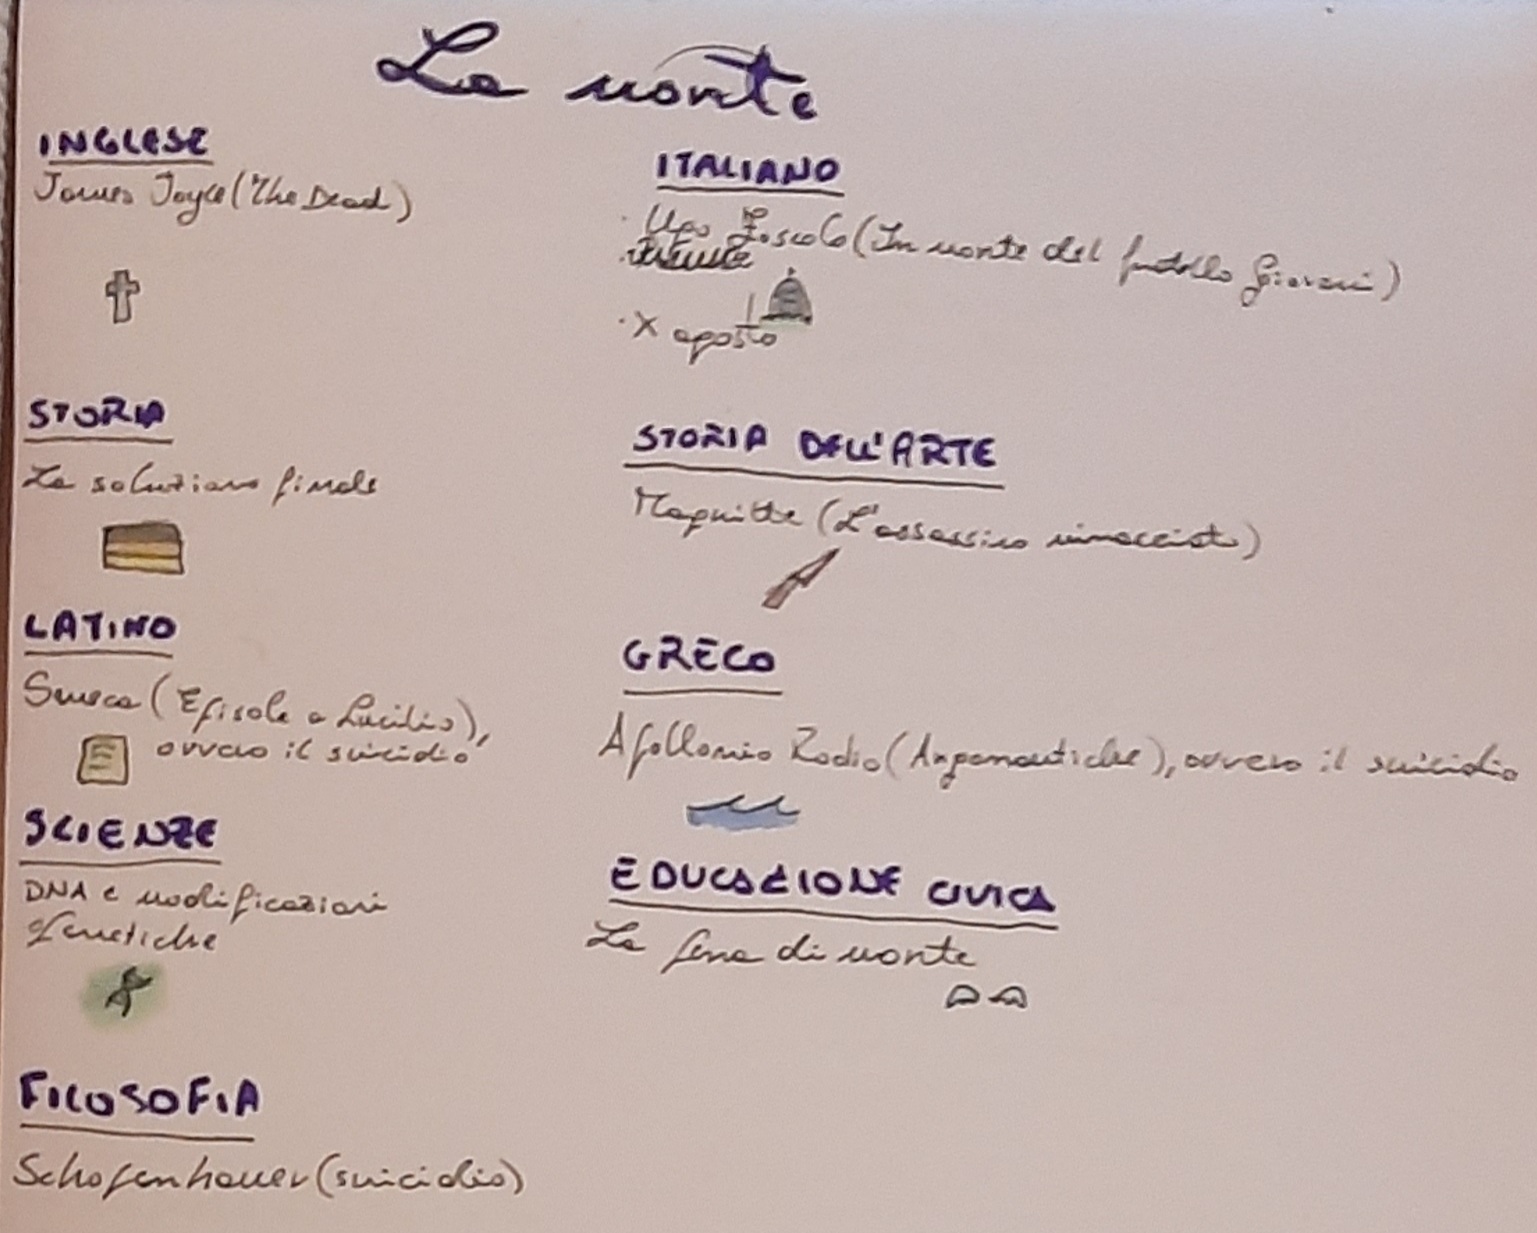 La morte
INGLESE
James Joyce (The Dead)
ITALIANO
· Ugo Foscolo (In morte del fratello Giovanni)
· X agosto
STORIA
La soluzione finale
STORIA DELL'ARTE
Magritte (L'assassino minacciato)
LATINO
Seneca (Epistole a Lucilio),
ovvero il suicidio
GRECO
Apollonio Rodio (Argonautiche), ovvero il suicidio
SCIENZE
DNA e modificazioni
genetiche
EDUCAZIONE CIVICA
La pena di morte
FILOSOFIA
Schopenhauer (suicidio)